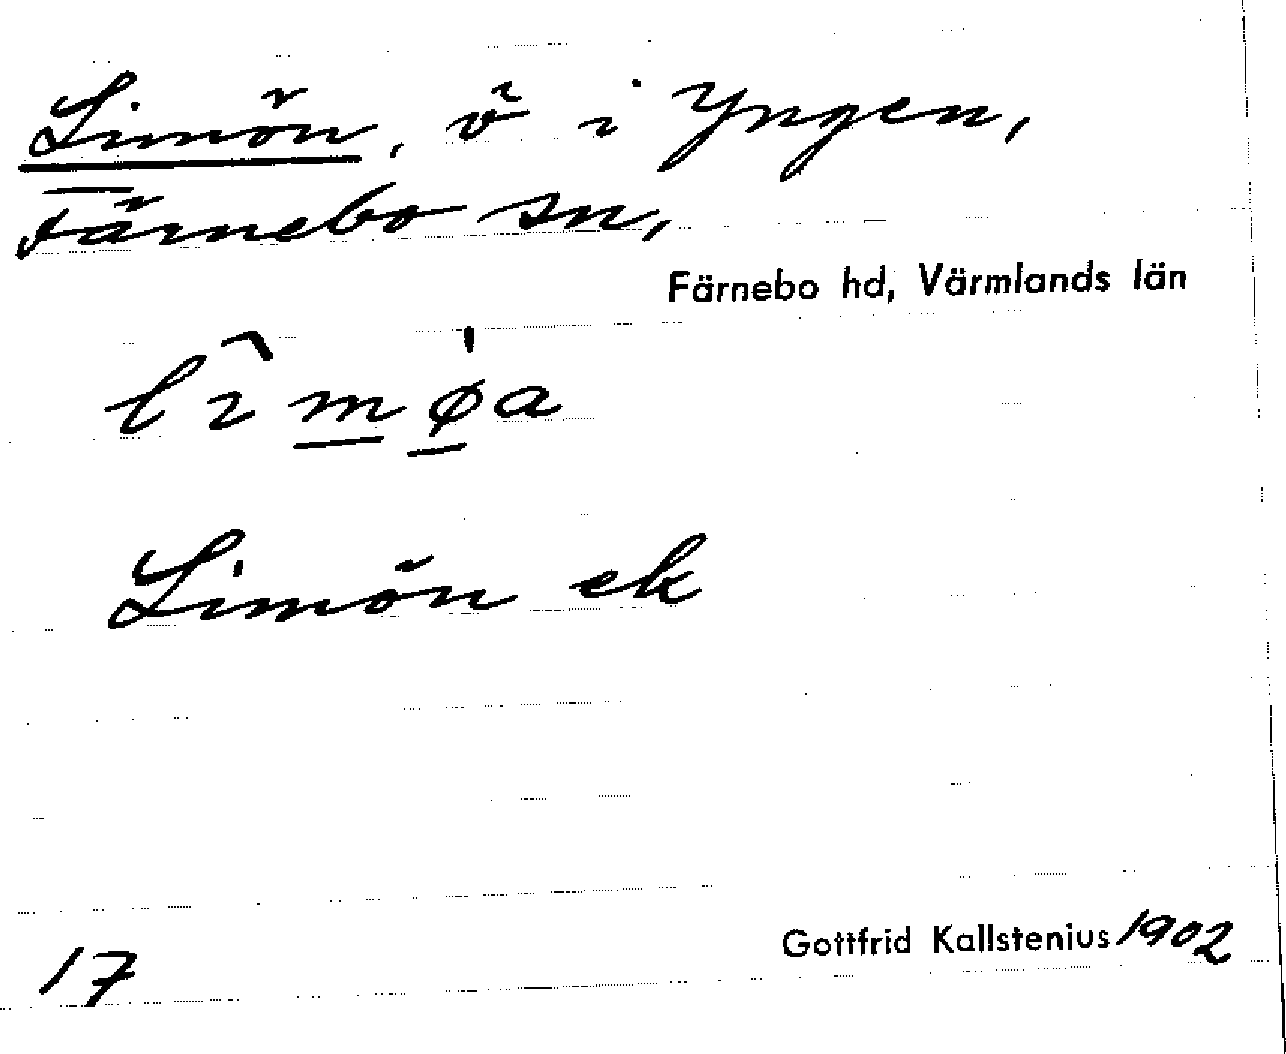 Limön, ö i Yngen,
Färnebo sn,
Färnebo hd, Värmlands län
lìmø̀a
Limön ek
Gottfrid Kallstenius 1902
17